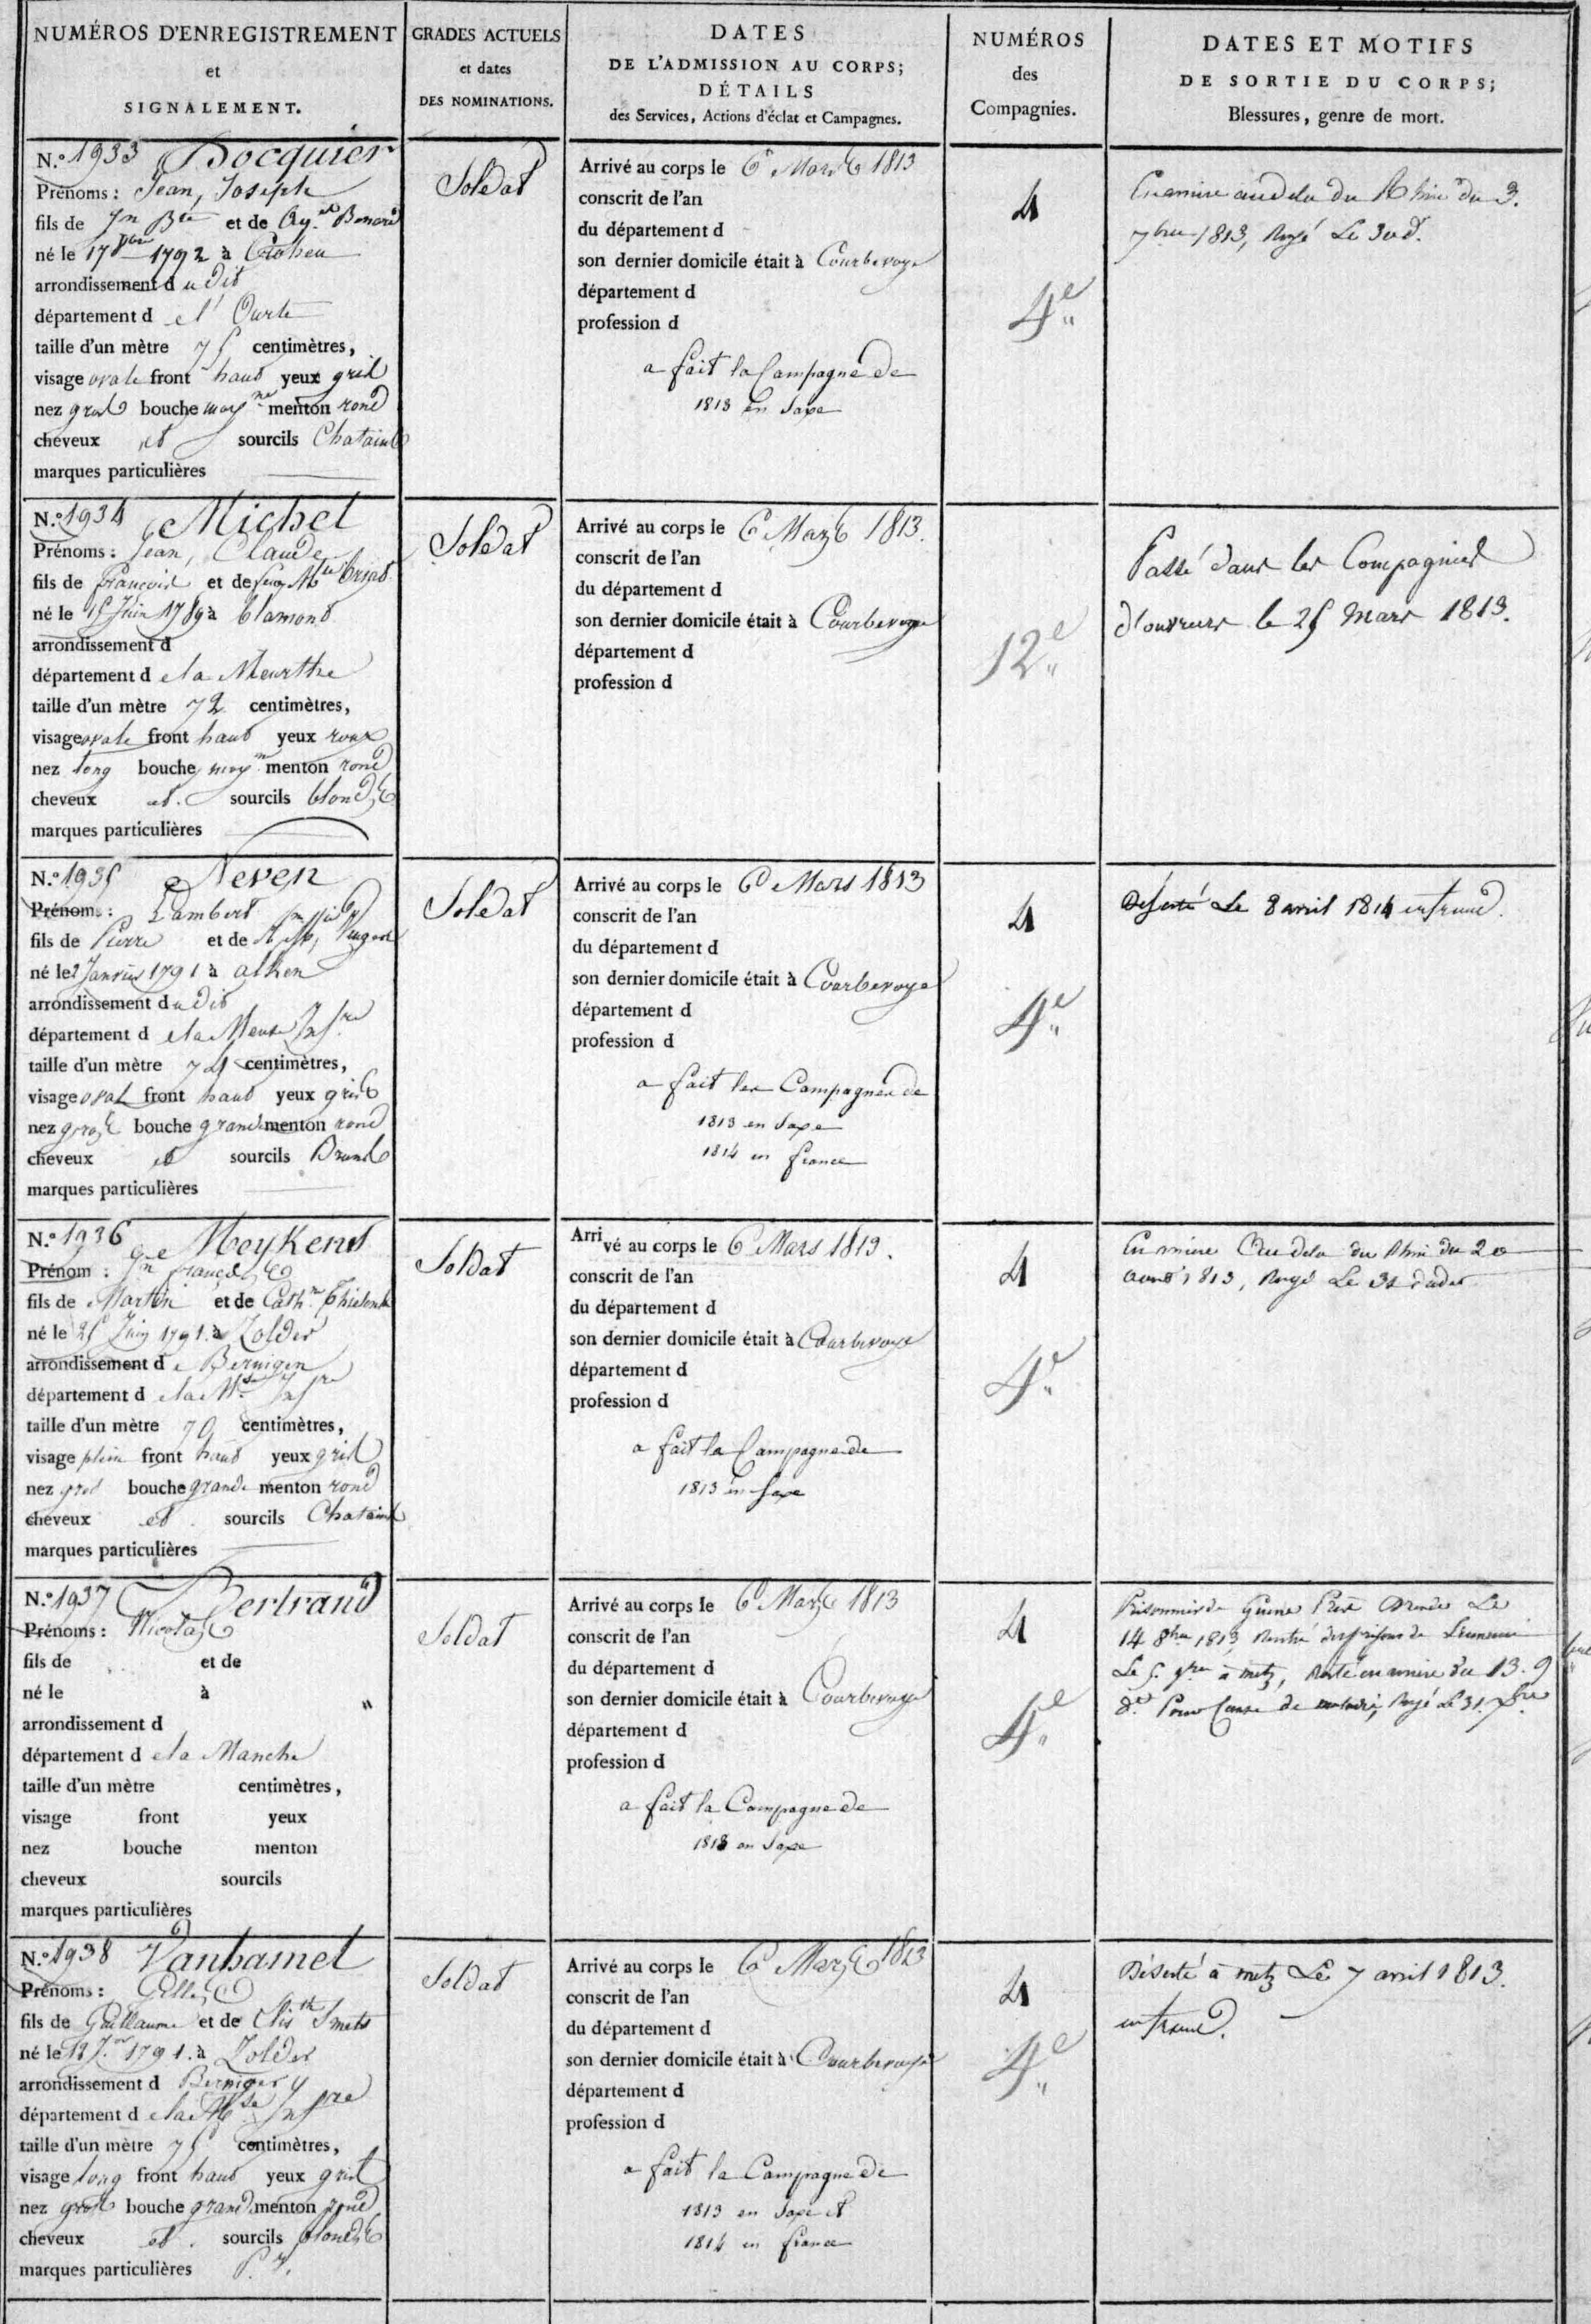 NUMÉROS D'ENREGISTREMENT
et
SIGNALEMENT.
GRADES ACTUELS
et dates
DES NOMINATIONS.
DATES
DE L'ADMISSION AU CORPS;
DÉTAILS
des Services, Actions d'éclat et Campagnes.
NUMÉROS
des
Compagnies.
DATES ET MOTIFS
DE SORTIE DU CORPS;
Blessures, genre de mort.
N.° 1933 Docquier
Prénoms : Jean, Joseph
fils de Jn Bte et de
né le 17 1792 à
arrondissement d u dit
département d e l'Ourte
taille d'un mètre 75 centimètres,
visage ovale front haut yeux gris
nez gros bouche moyne menton rond
cheveux et sourcils Chatains
marques particulières
Soldat
Arrivé au corps le 6 Mars 1813
conscrit de l'an
du département d
son dernier domicile était à Courbevoye
département d
profession d
a fait la Campagne de
1813 en Saxe
4
4e
au dela du Rhin du 3.
7bre 1813, Rayé Le 30 d.
N.° 1934 Michel
Prénoms : Jean, Claude
fils de François et de
né le 15 Juin 1789 à blamont
arrondissement d
département d e la Meurthe
taille d'un mètre 72 centimètres,
visage ovale front haut yeux roux
nez long bouche moyn menton rond
cheveux et. sourcils blonds
marques particulières
Soldat
Arrivé au corps le 6 Mars 1813.
conscrit de l'an
du département d
son dernier domicile était à Courbevoye
département d
profession d
12e
Passé dans les Compagnies
d'ouvriers le 25 Mars 1813.
N.° 1935 Neven
Prénoms : Lambert
fils de Pierre et de
né le 2 Janvier 1791 à alken
arrondissement d u dit
département d e la Meuse Infre
taille d'un mètre 74 centimètres,
visage oval front haut yeux gris
nez gros bouche grande menton rond
cheveux et sourcils Bruns
marques particulières
Soldat
Arrivé au corps le 6 Mars 1813
conscrit de l'an
du département d
son dernier domicile était à Courbevoye
département d
profession d
a fait les Campagnes de
1813 en Saxe
1814 en france
4
4e
Déserté Le 8 avril 1814
N.° 1936 Meykens
Prénom : Jn françois
fils de Martin et de Cathne
né le 25 Juin 1791. à Zolder
arrondissement d e Beringen
département d e la Mse Infre
taille d'un mètre 70 centimètres,
visage plein front haut yeux gris
nez gros bouche grande menton rond
cheveux et. sourcils Chatains
marques particulières
Soldat
Arrivé au corps le 6 Mars 1813.
conscrit de l'an
du département d
son dernier domicile était à Courbevoye
département d
profession d
a fait la Campagne de
1813 en Saxe
4
4e
Au dela du Rhin du 20
août 1813, Rayé Le 31 dudit
N.° 1937 Bertrand
Prénoms : Nicolas
fils de et de
né le à "
arrondissement d
département d e la Manche
taille d'un mètre centimètres,
visage front yeux
nez bouche menton
cheveux sourcils
marques particulières
Soldat
Arrivé au corps le 6 Mars 1813
conscrit de l'an
du département d
son dernier domicile était à Courbevoye
département d
profession d
a fait la Campagne de
1813 en Saxe
4
4e
Prisonnier de Guerre Le
14 8bre 1813, Rentré des prisons de
Le 5. 9bre à metz, du 13. 9
Pour Cause de Rayé Le 31.
N.° 1938 Vanhamel
Prénoms : Gilles
fils de Guillaume et de Elisth Smets
né le 1791. à Zolder
arrondissement d Beringen
département d e la Mse Infre
taille d'un mètre 75 centimètres,
visage long front haut yeux gris
nez gros bouche grande menton rond
cheveux et. sourcils blonds
marques particulières
Soldat
Arrivé au corps le 6 Mars 1813
conscrit de l'an
du département d
son dernier domicile était à Courbevoye
département d
profession d
a fait la Campagne de
1813 en Saxe et
1814 en france
4
4e
Déserté à metz Le 7 avril 1813.